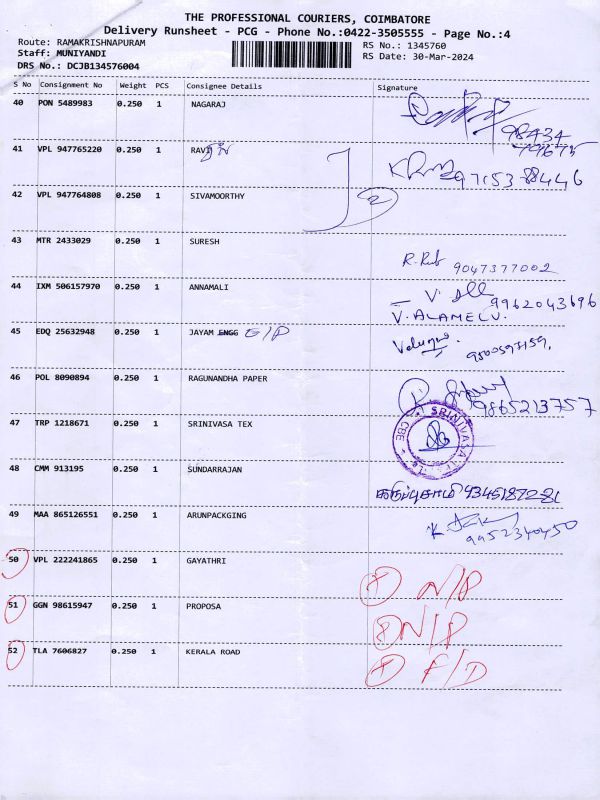 THE PROFESSIONAL COURIERS, COIMBATORE
Delivery Runsheet - PCG - Phone No.:0422-3505555 - Page No.:4
Route: RAMAKRISHNAPURAM
RS No.: 1345760
Staff: MUNIYANDI
RS Date: 30-Mar-2024
DRS No.: DCJB134576004
S No Consignment No Weight PCS Consignee Details Signature
40 PON 5489983 0.250 1 NAGARAJ
98434
41 VPL 947765220 0.250 1 RAVI
9715378446
42 VPL 947764808 0.250 1 SIVAMOORTHY
2
43 MTR 2433029 0.250 1 SURESH
9047377002
44 IXM 506157970 0.250 1 ANNAMALI
9962043696
V. ALAMELU.
45 EDQ 25632948 0.250 1 JAYAM ENGG
46 POL 8090894 0.250 1 RAGUNANDHA PAPER
9865213757
47 TRP 1218671 0.250 1 SRINIVASA TEX
SRINIVASA TEX
CBE
48 CMM 913195 0.250 1 SUNDARRAJAN
கருப்புசாமி
49 MAA 865126551 0.250 1 ARUNPACKGING
9952340450
50 VPL 222241865 0.250 1 GAYATHRI N/P
51 GGN 98615947 0.250 1 PROPOSA N/P
52 TLA 7606827 0.250 1 KERALA ROAD F/D